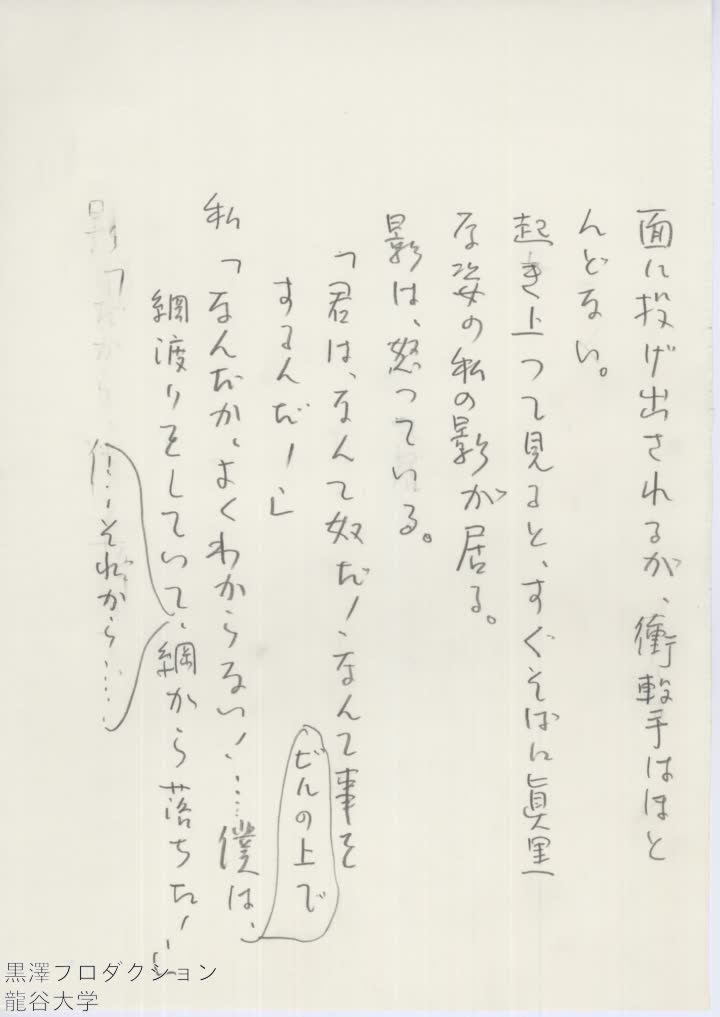 面に投げ出されるが、衝撃はほと
んどない。
起き上って見ると、すぐそばに眞黒
な姿の私の影が居る。
影は、怒っている。
「君は、なんて奴だ！、なんて事を
するんだ！」
ビルの上で
私「なんだか、よくわからない！……僕は、
綱渡りをしていて、綱から落ちた！…
…それから……
影「
黒澤プロダクション
龍谷大学